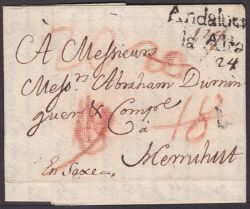 Andalucia
la Alta
24
À Messieurs
Mess.rs Abraham Durnin
guer & Comp.e
à
18
Herrnhutt
En Saxe